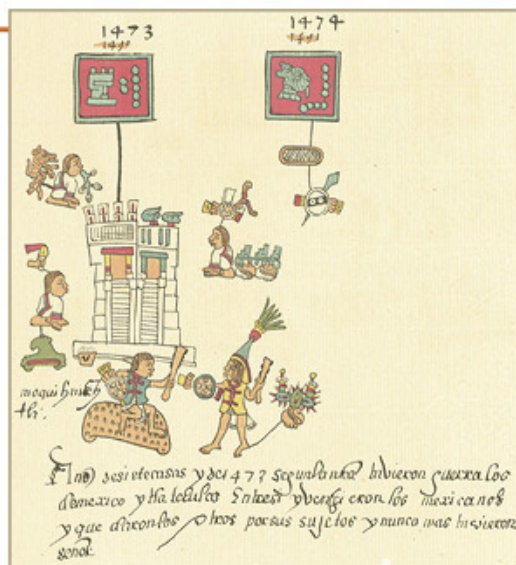 1473
1474
moquihuix
tli
Año desietecasas y de1473 segunla nra tuvieron guerra los
demexico y tlatelulco Entresi y vençieron los mexicanos
y quedaron los otros por sus sujetos y nunca mas tuvieron
señor.